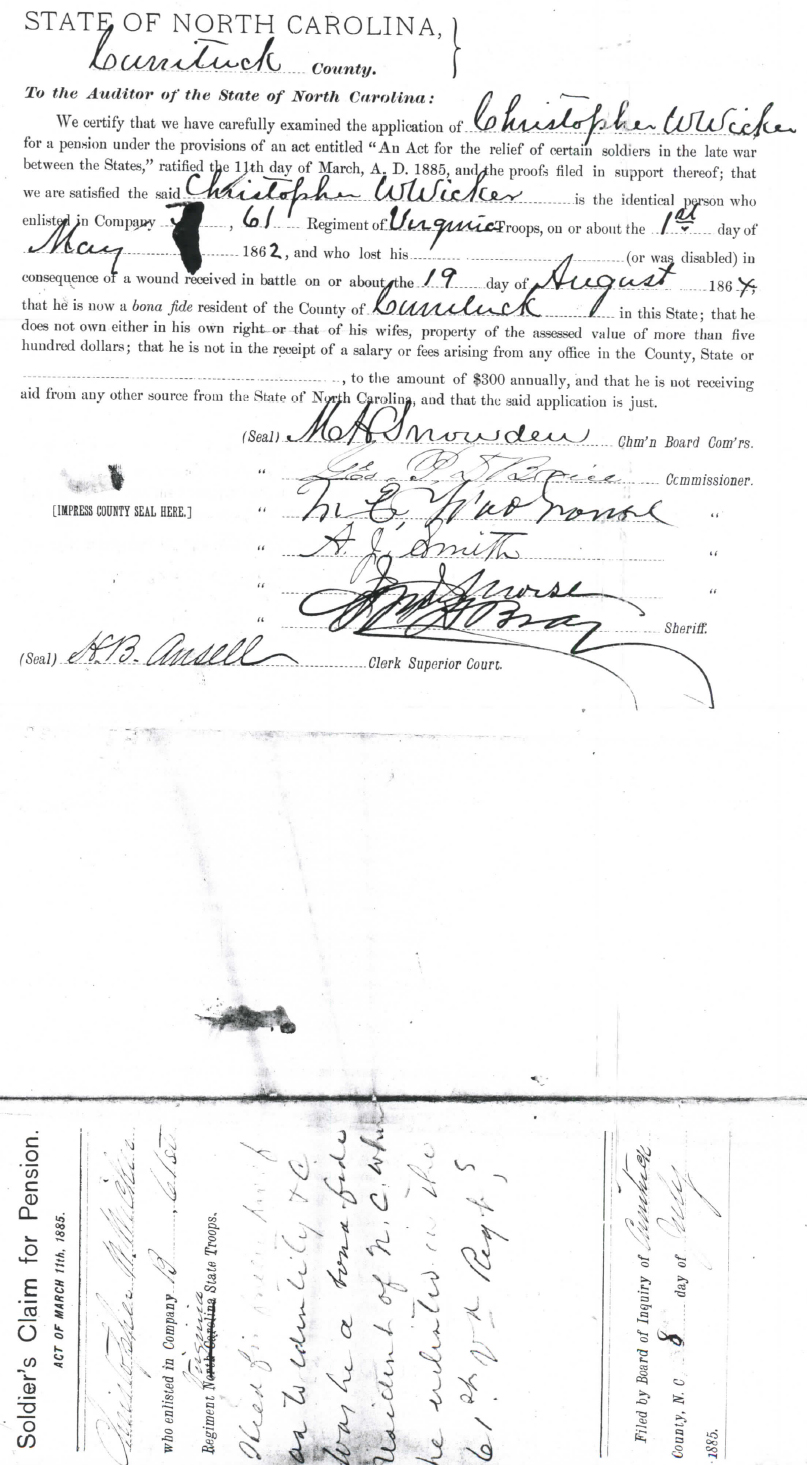 STATE OF NORTH CAROLINA,
Currituck County.
To the Auditor of the State of North Carolina:
We certify that we have carefully examined the application of Christopher W Wicker
for a pension under the provisions of an act entitled “An Act for the relief of certain soldiers in the late war
between the States,” ratified the 11th day of March, A. D. 1885, and the proofs filed in support thereof; that
we are satisfied the said Christopher W Wicker is the identical person who
enlisted in Company , 61 Regiment of Virginia Troops, on or about the 1st day of
May 1862, and who lost his (or was disabled) in
consequence of a wound received in battle on or about the 19 day of August 1864,
that he is now a bona fide resident of the County of Currituck in this State; that he
does not own either in his own right or that of his wifes, property of the assessed value of more than five
hundred dollars; that he is not in the receipt of a salary or fees arising from any office in the County, State or
, to the amount of $300 annually, and that he is not receiving
aid from any other source from the State of North Carolina, and that the said application is just.
(Seal) M H Snowden Chm'n Board Com'rs.
“ Commissioner.
[IMPRESS COUNTY SEAL HERE.] “ “
“ A. J. Smith “
“ “
“ Bray Sheriff.
(Seal) H. B. Ansell Clerk Superior Court.
Soldier's Claim for Pension.
ACT OF MARCH 11th, 1885.
Christopher W Wicker
who enlisted in Company B , 61st
Virginia
Regiment North Carolina State Troops.
as to identity &c
Was he a bona fide
resident of N. C. when
he enlisted in the
61st Va Regt,
Filed by Board of Inquiry of Currituck
County, N. C 8 day of July
1885.